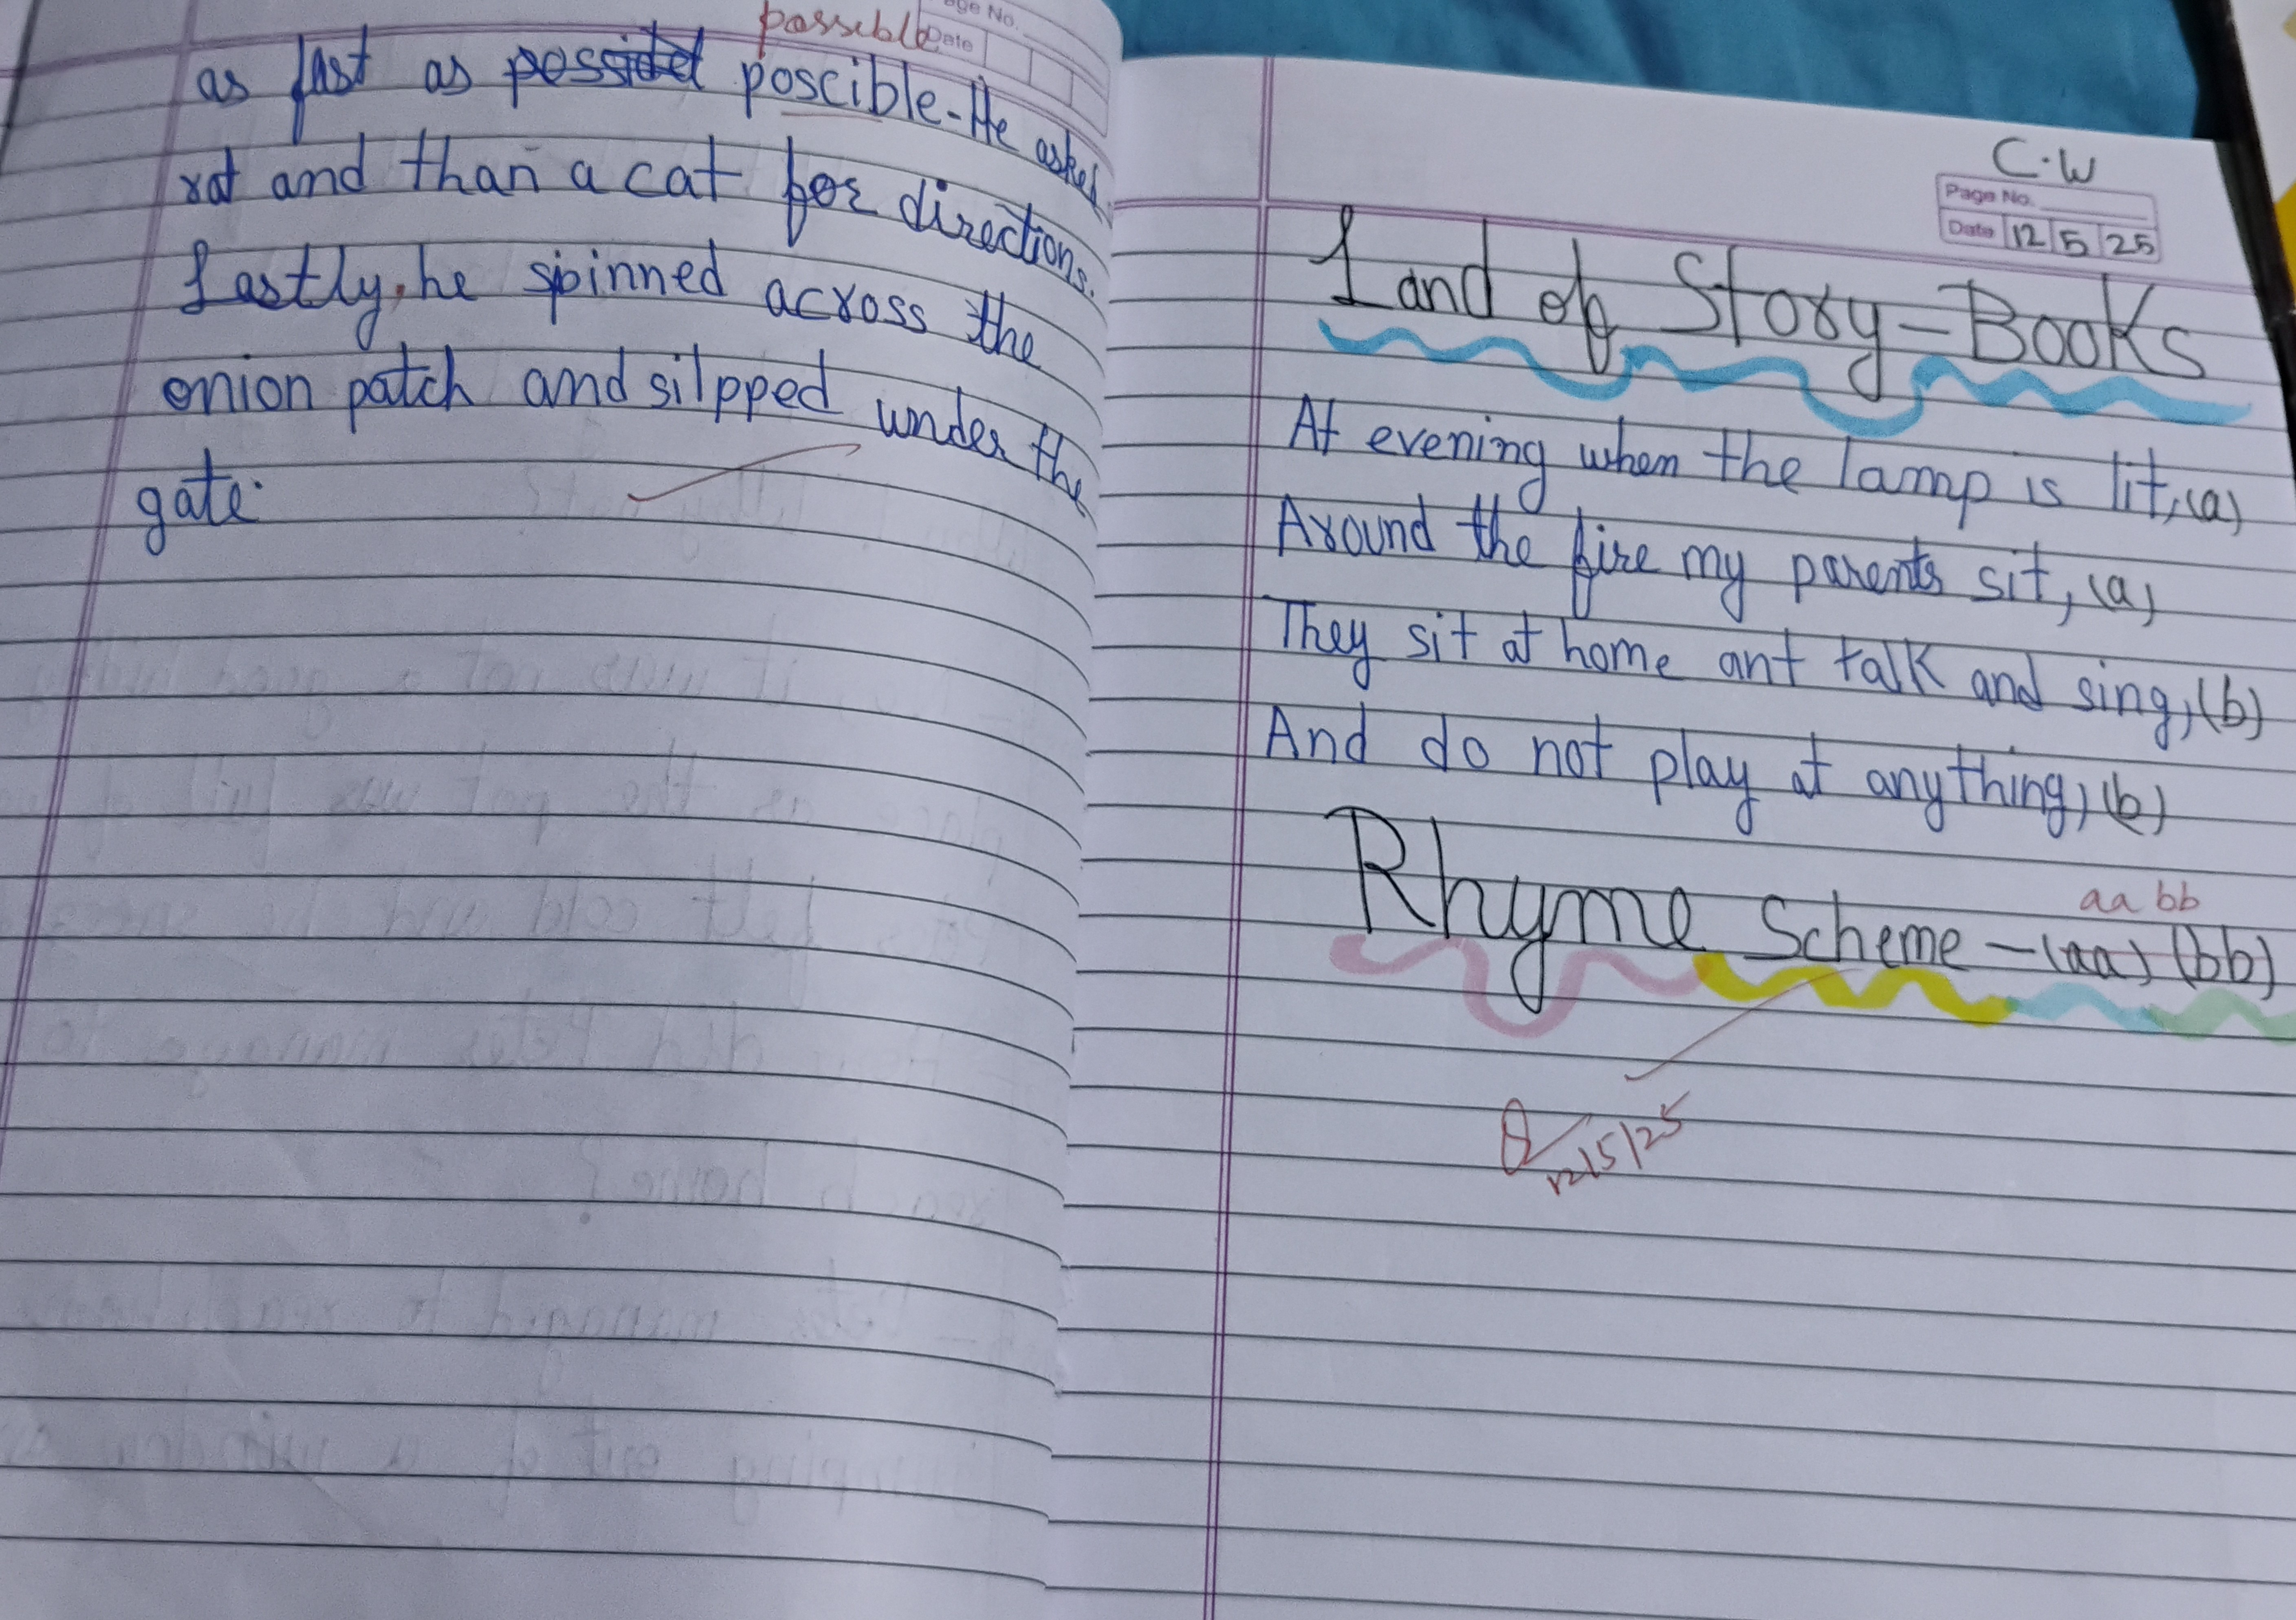 possible
Page No.
Date
as fast as poscible. He asked
rat and than a cat for directions.
Lastly, he spinned across the
onion patch and silpped under the
gate.
C.W
Page No.
Date 12 5 25
Land of Story-Books
At evening when the lamp is lit, (a)
Around the fire my parents sit, (a)
They sit at home ant talk and sing, (b)
And do not play at anything, (b)
aa bb
Rhyme Scheme - (aa) (bb)
12/5/25